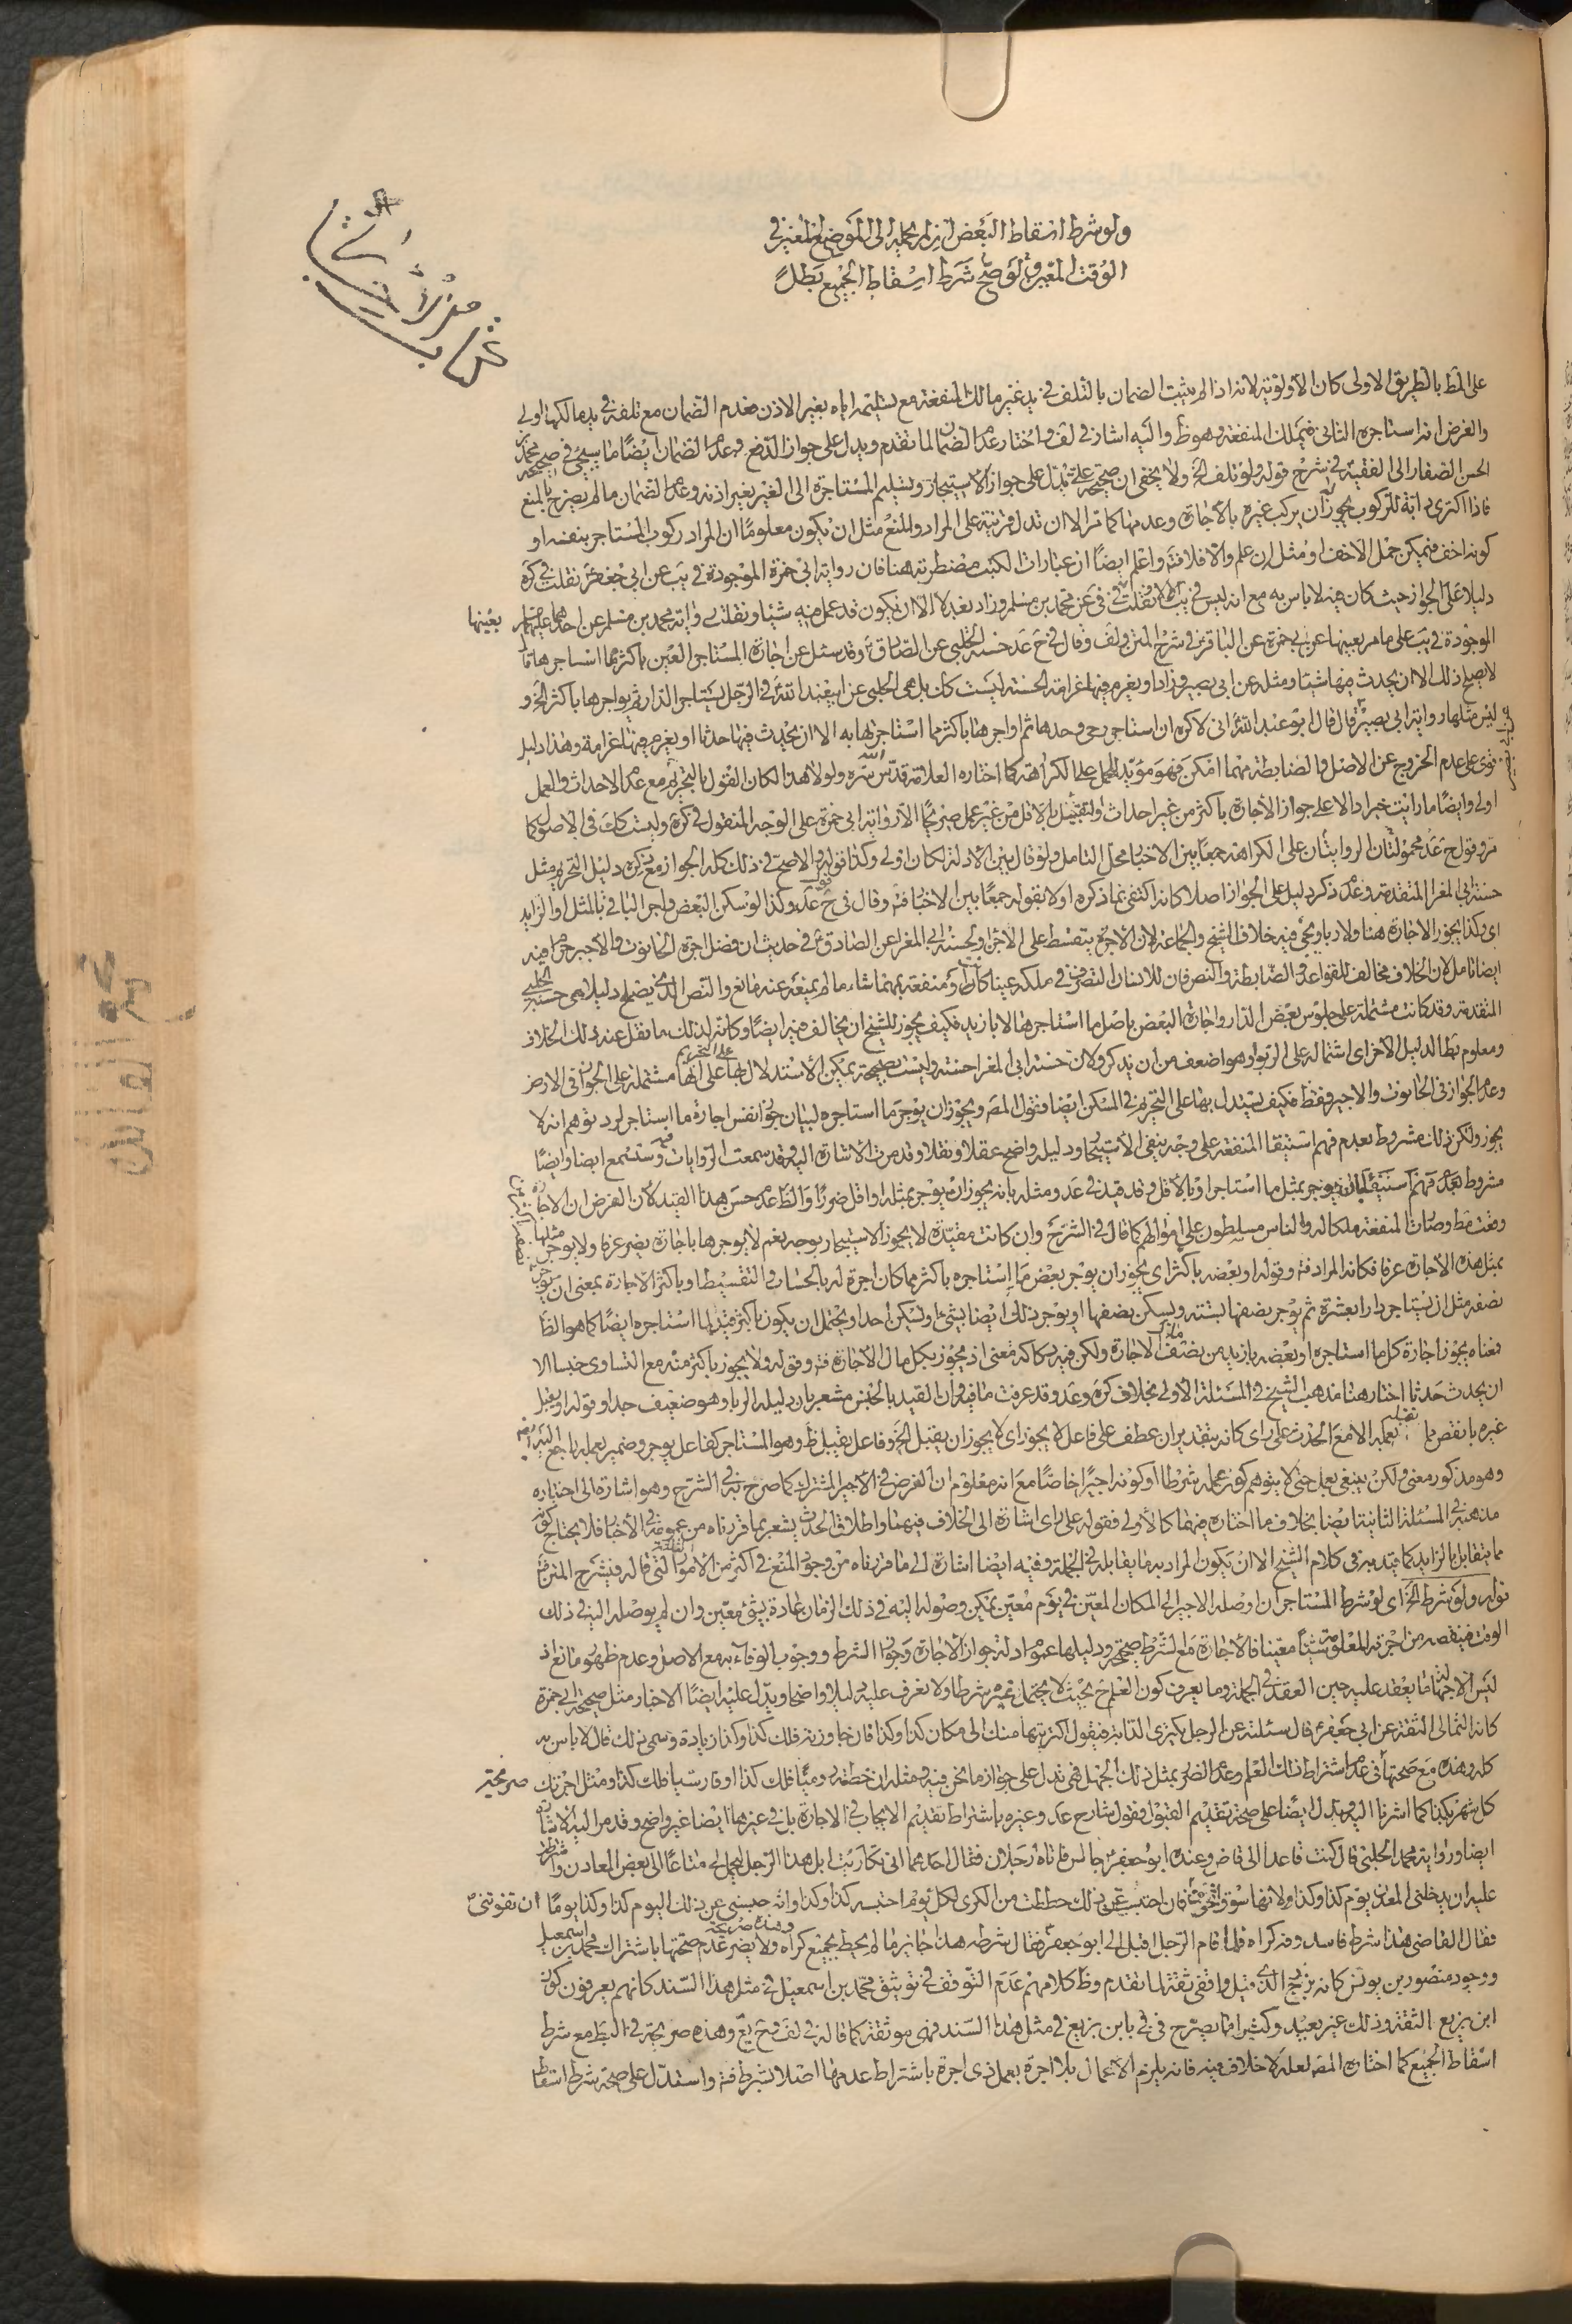 ولو شرط اسقاط البعض ان لم يحمله الى الموضع المعين في
الوقت المعين صح ولو شرط اسقاط الجميع بطل
كتاب
على المط بالطريق الاولى كان الأولوية لانه اذا لم يثبت الضمان بالتلف في يد غير مالك المنفعة مع تسليمه اياه بغير الاذن فعدم الضمان مع تلفه في يد مالكها اولى
والغرض انه استاجره الثاني فيملك المنفعة وهو ظ واليه اشار في لف واختار عدم الضمان لما تقدم ويدل على جواز الدفع وعدم الضمان ايضا ما سيجئ في صحيحة محمد
الحسن الصفار الى الفقيه في شرح قوله ولو تلف الخ ولا يخفى ان صحيحة على تدل على جواز الاستيجار وتسليم المستاجرة الى الغير بغير اذنه وعدم الضمان ما لم يصرح بالمنع
فاذا اكترى دابة للركوب يجوز ان يركب غيره بالاجارة وعدمها كما تر الا ان تدل قرينة على المراد والمنع مثل ان يكون معلوما ان المراد ركوب المستاجر بنفسه او
كونه اخف فيمكن حمل الاخف او مثل ان علم والا فلا فت واعلم ايضا ان عبارات الكتب مضطربة هنا فان رواية ابي حمزة الموجودة في يب عن ابي جعفر نقلت في كره
دليلا على الجواز حيث كان فيه لاباس به مع انه ليس في يب الا ونقلت في عن محمد بن مسلم وزاد بعد لا الا ان يكون قد عمل فيه شيئا ونقلت رواية محمد بن مسلم عن احدهما عليهما بعينها
الموجودة في يب على ما مر بعينها عن ابي حمزة عن الباقر في شرح المتن ولف وقال في ح عد حسنة الحلبي عن الصادق وقد سئل عن اجارة المستاجر العين باكثر مما استاجرها قال
لا يصلح ذلك الا ان يحدث فيها شيئا ومثله عن ابي بصير وزاد او يغرم فيها غرامة الحسنة ليست كك بل هي الحلبي عن ابي عبد الله في الرجل يستاجر الدار ثم يواجرها باكثر الخ و
ليس مثلها رواية ابي بصير قال قال ابو عبد الله اني لاكره ان استاجر رحى وحدها ثم اواجرها باكثر مما استاجرتها به الا ان يحدث فيها حدثا او يغرم فيها غرامة وهذا دليل
قوى على عدم الخروج عن الاصل والضابطة مهما امكن فهو مؤيد للحمل على الكراهة كما اختاره العلامة قدس الله سره ولولا هذا لكان القول بالتحريم مع عدم الاحداث والعمل
اولى وايضا ما رايت خبرا دالا على جواز الاجارة باكثر من غير احداث والتقبل بالاقل من غير عمل صريحا الا رواية ابي حمزة على الوجه المنقول في كره وليست كك في الاصول كما
مر وقول ح عد محمولتان الروايتان على الكراهة جمعا بين الاخبار محل التامل ولو قال بين الادلة لكان اولى وكذا قوله والاصح في ذلك كله الجواز مع ذكره دليل التحريم مثل
حسنة ابي المغرا المتقدمة وعدم ذكر دليل على الجواز اصلا كانه اكتفى بما ذكره اولا بقوله جمعا بين الاخبار فت وقال في ح عد قوله وكذا لو سكن البعض واجر الباقي بالمثل او الزايد
اي وكذا يجوز الاجارة هنا ولا ربا ويجئ فيه خلاف الشيخ والجماعة لان الاجرة يتقسط على الاجزاء ولحسنة ابي المغرا عن الصادق في حديث ان فضل اجرة الحانوت والاجير حرام فيه
ايضا تامل لان الخلاف مخالف للقواعد والضابطة والنص فان للانسان التصرف في ملكه عينا كان او منفعة مهما شاء ما لم يمنعه عنه مانع والنص الذي يصلح دليلا هي حسنة الحلبي
المتقدمة وقد كانت مشتملة على جلوس بعض الدار واجارة البعض باصل ما استاجرها لا بازيد فكيف يجوز للشيخ ان يخالف فيه ايضا وكانه لذلك ما نقل عنه ذلك الخلاف
ومعلوم بطا الدليل الاخر اي اشتماله على الربوا وهو اضعف من ان يذكر ولان حسنة ابي المغرا حسنة وليست بصحيحة يمكن الاستدلال بها على التحريم على انها مشتملة على الجواز في الارض
وعدم الجواز في الحانوت والاجير فقط فكيف يستدل بها على التحريم في المسكن ايضا وقول المصـ ويجوز ان يوجر ما استاجره لبيان جواز نفس اجارة ما استاجر لرد توهم انه لا
يجوز ولكن ذلك مشروط بعدم فهم استيفا المنفعة على وجه ينفي الاستيجار ودليله واضح عقلا ونقلا وقد مرت الاشارة اليه وقد سمعت الروايات فيه وستسمع ايضا وايضا
مشروط بعدم فهم استيفائه بان يوجر بمثل ما استاجر او بالاقل وقد قيد في عد ومثله بانه يجوز ان يوجر بمثله او اقل ضررا والظ عدم حسن هذا القيد لان الفرض ان الاجارة
وقعت مط وصارت المنفعة ملكا له والناس مسلطون على اموالهم كما قال في الشرح وان كانت مقيدة لا يجوز الاستيجار بوجه نعم لا يوجرها باجارة يضر عرفا ولا يوجر مثلها
بمثل هذه الاجارة عرفا فكانه المراد فت وقوله او بعضه باكثر اي يجوز ان يوجر بعض ما استاجره باكثر مما كان اجرة له بالحساب والتقسيط او باكثر الاجارة بمعنى ان يوجر
نصفه مثل ان يستاجر دارا بعشرة ثم يوجر نصفها بستة ويسكن نصفها او يوجر ذلك ايضا بشئ او يسكن احدا ويحتمل ان يكون باكثر قيدا لما استاجره ايضا كما هو الظ
فمعناه يجوز اجارة كل ما استاجره او بعضه بازيد من نصف مال الاجارة ولكن فيه ركاكة معنى اذ يجوز بكل مال الاجارة فت وقوله ولا يجوز باكثر منه مع التساوي جنسا الا
ان يحدث حدثا اختار هنا مذهب الشيخ في المسئلة الاولى بخلاف كره وعد وقد عرفت ما فيه وان القيد بالجنس مشعر بان دليله الربا وهو ضعيف جدا وقوله او يقبل
غيره بانقص مما تقبله بعمله الا مع الحدث على راى كانه بتقدير ان عطف على فاعل لا يجوز اي لا يجوز ان يقبل الخ وفاعل يقبل ظ وهو المستاجر كفاعل يوجر وضمير بعمله راجع اليه ايضا
وهو مذكور معنى ولكن ينبغي بعمل حتى لا يتوهم كون عمله شرطا او كونه اجيرا خاصا مع انه معلوم ان الغرض في الاجير المشترك كما صرح به في الشرح وهو اشارة الى اختياره
مذهبه في المسئلة الثانية ايضا بخلاف ما اختاره فيهما كالاولى فقوله على راى اشارة الى الخلاف فيهما واطلاق الحدث يشعر بما قررناه من عمومه في الاخبار فلا يحتاج كونه
مما يتقابل بالزايد كما قيد به في كلام الشيخ الا ان يكون المراد به ما يقابله في الجملة وفيه ايضا اشارة الى ما قررناه من وجود المنع في اكثر من الامور الثلثة التي قاله في شرح المتن فت
قوله ولو شرط الخ اي لو شرط المستاجر ان اوصله الاجير الى المكان المعين في يوم معين يمكن وصوله اليه في ذلك الزمان عادة بشئ معين وان لم يوصله اليه في ذلك
الوقت فينقصه من اجرته المعلومة شيئا معينا فالاجارة مع الشرط صحيحة ودليلها عموم ادلة جواز الاجارة وجواز الشرط ووجوب الوفاء به مع الاصل وعدم ظهور مانع اذ
ليس الا جهالة ما يعقد عليه حين العقد في الجملة وما يعرف كون العلم ح بحيث لا يحتمل غيره شرطا ولا نعرف عليه دليلا واضحا ويدل عليه ايضا الاخبار مثل صحيحة ابي حمزة
كانه الثمالي الثقة عن ابي جعفر قال سئلته عن الرجل يكترى الدابة فيقول اكتريتها منك الى مكان كذا وكذا فان جاوزته فلك كذا وكذا زيادة وسمى ذلك قال لا باس به
كله وهذه مع صحتها في عدم اشتراط ذلك العلم وعدم الضرر بمثل ذلك الجهل فهي تدل على جواز ما نحن فيه ومثله ان خطته روميا فلك كذا او فارسيا فلك كذا ومثل اجرتك
كل شهر بكذا كما اشرنا اليه ويدل ايضا على صحة تقديم القبول فقول شارح عد وغيره باشتراط تقديم الايجاب في الاجارة بل في غيرها ايضا غير واضح وقد مر اليه الاشارة
ايضا ورواية محمد الحلبي قال كنت قاعدا الى قاض وعنده ابو جعفر جالس فاتاه رجلان فقال احدهما اني تكاريت ابل هذا الرجل ليحمل لي متاعا الى بعض المعادن واشترطت
عليه ان يدخلني المعدن يوم كذا وكذا ولانها سوق اتخوف ان تفوتني فان احتبست عن ذلك حططت من الكرى لكل يوم احتبسه كذا وكذا وانه حبسني عن ذلك اليوم كذا وكذا يوما
فقال القاضي هذا شرط فاسد وفه كراه فلما قام الرجل اقبل الي ابو جعفر فقال شرطه هذا جايز ما لم يحط بجميع كراه ولا يضر عدم صحتها باشتراك محمد بن اسمعيل
ووجود منصور بن يونس كانه بزرج الذي قيل واقفي ثقة لما تقدم وظ كلامهم عدم التوقف في توثيق محمد بن اسمعيل في مثل هذا السند كانهم يعرفون كونه
ابن بزيع الثقة وذلك غير بعيد وكثيرا ما يصرح في في بابن بزيع في مثل هذا السند فهي موثقة كما قاله في لف وح يع وهذه صريحة في البط مع شرط
اسقاط الجميع كما اختاره المصـ لعله لا خلاف فيه فانه يلزم الاعمال بلا اجرة بعمل ذى اجرة باشتراط عدمها اصلا لشرط فت واستدل على صحة شرط اسقاط